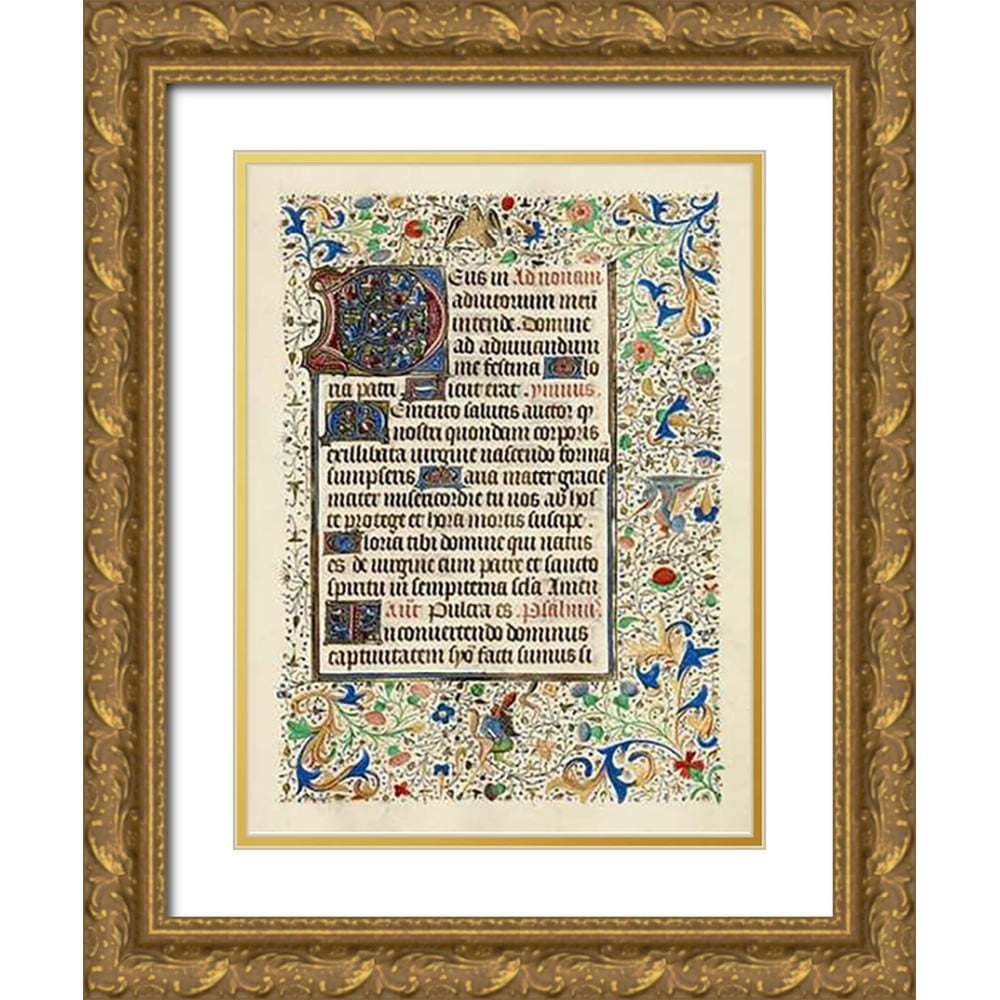 Deus in Ad nonam
adiutorium meū
intende. Domine
ad adiuuandum
me festina Glo
ria patri Sicut erat. ymnus.
Memento salutis auctor q
nostri quondam corporis
ex illibata uirgine nascendo forma
sumpseris Maria mater gracie
mater misericordie tu nos ab hos
te protege et hora mortis suscipe.
Gloria tibi domine qui natus
es de uirgine cum patre et sancto
spiritu in sempiterna scła Amen
Añ Pulcra es. Psalmus.
In conuertendo dominus
captiuitatem syō facti sumus si